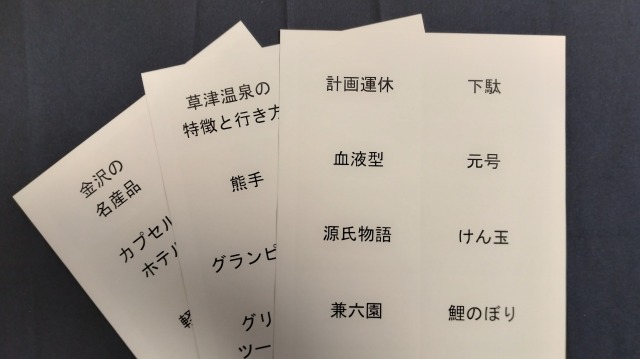 金沢の
名産品
カプセル
ホテル
軽
草津温泉の
特徴と行き方
熊手
グランピ
グリ
ツー
計画運休
下駄
血液型
元号
源氏物語
けん玉
兼六園
鯉のぼり